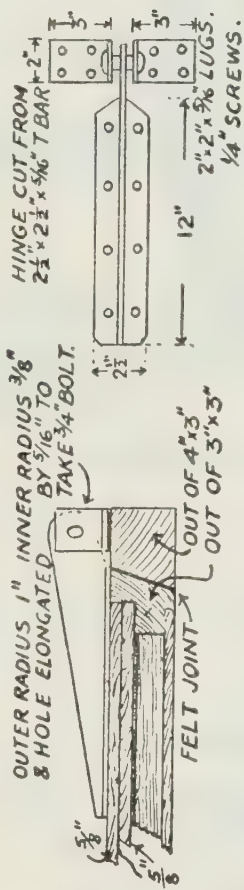 OUTER RADIUS 1" INNER RADIUS 3/8"
& HOLE ELONGATED BY 5/16" TO
TAKE 3/4" BOLT.
5/8"
5/8"
FELT JOINT
OUT OF 4"x3"
OUT OF 3"x3"
HINGE CUT FROM
2½"x2½"x5/16" T BAR
2"
3"
3"
2½"
12"
2"x2"x5/16" LUGS.
¼" SCREWS.